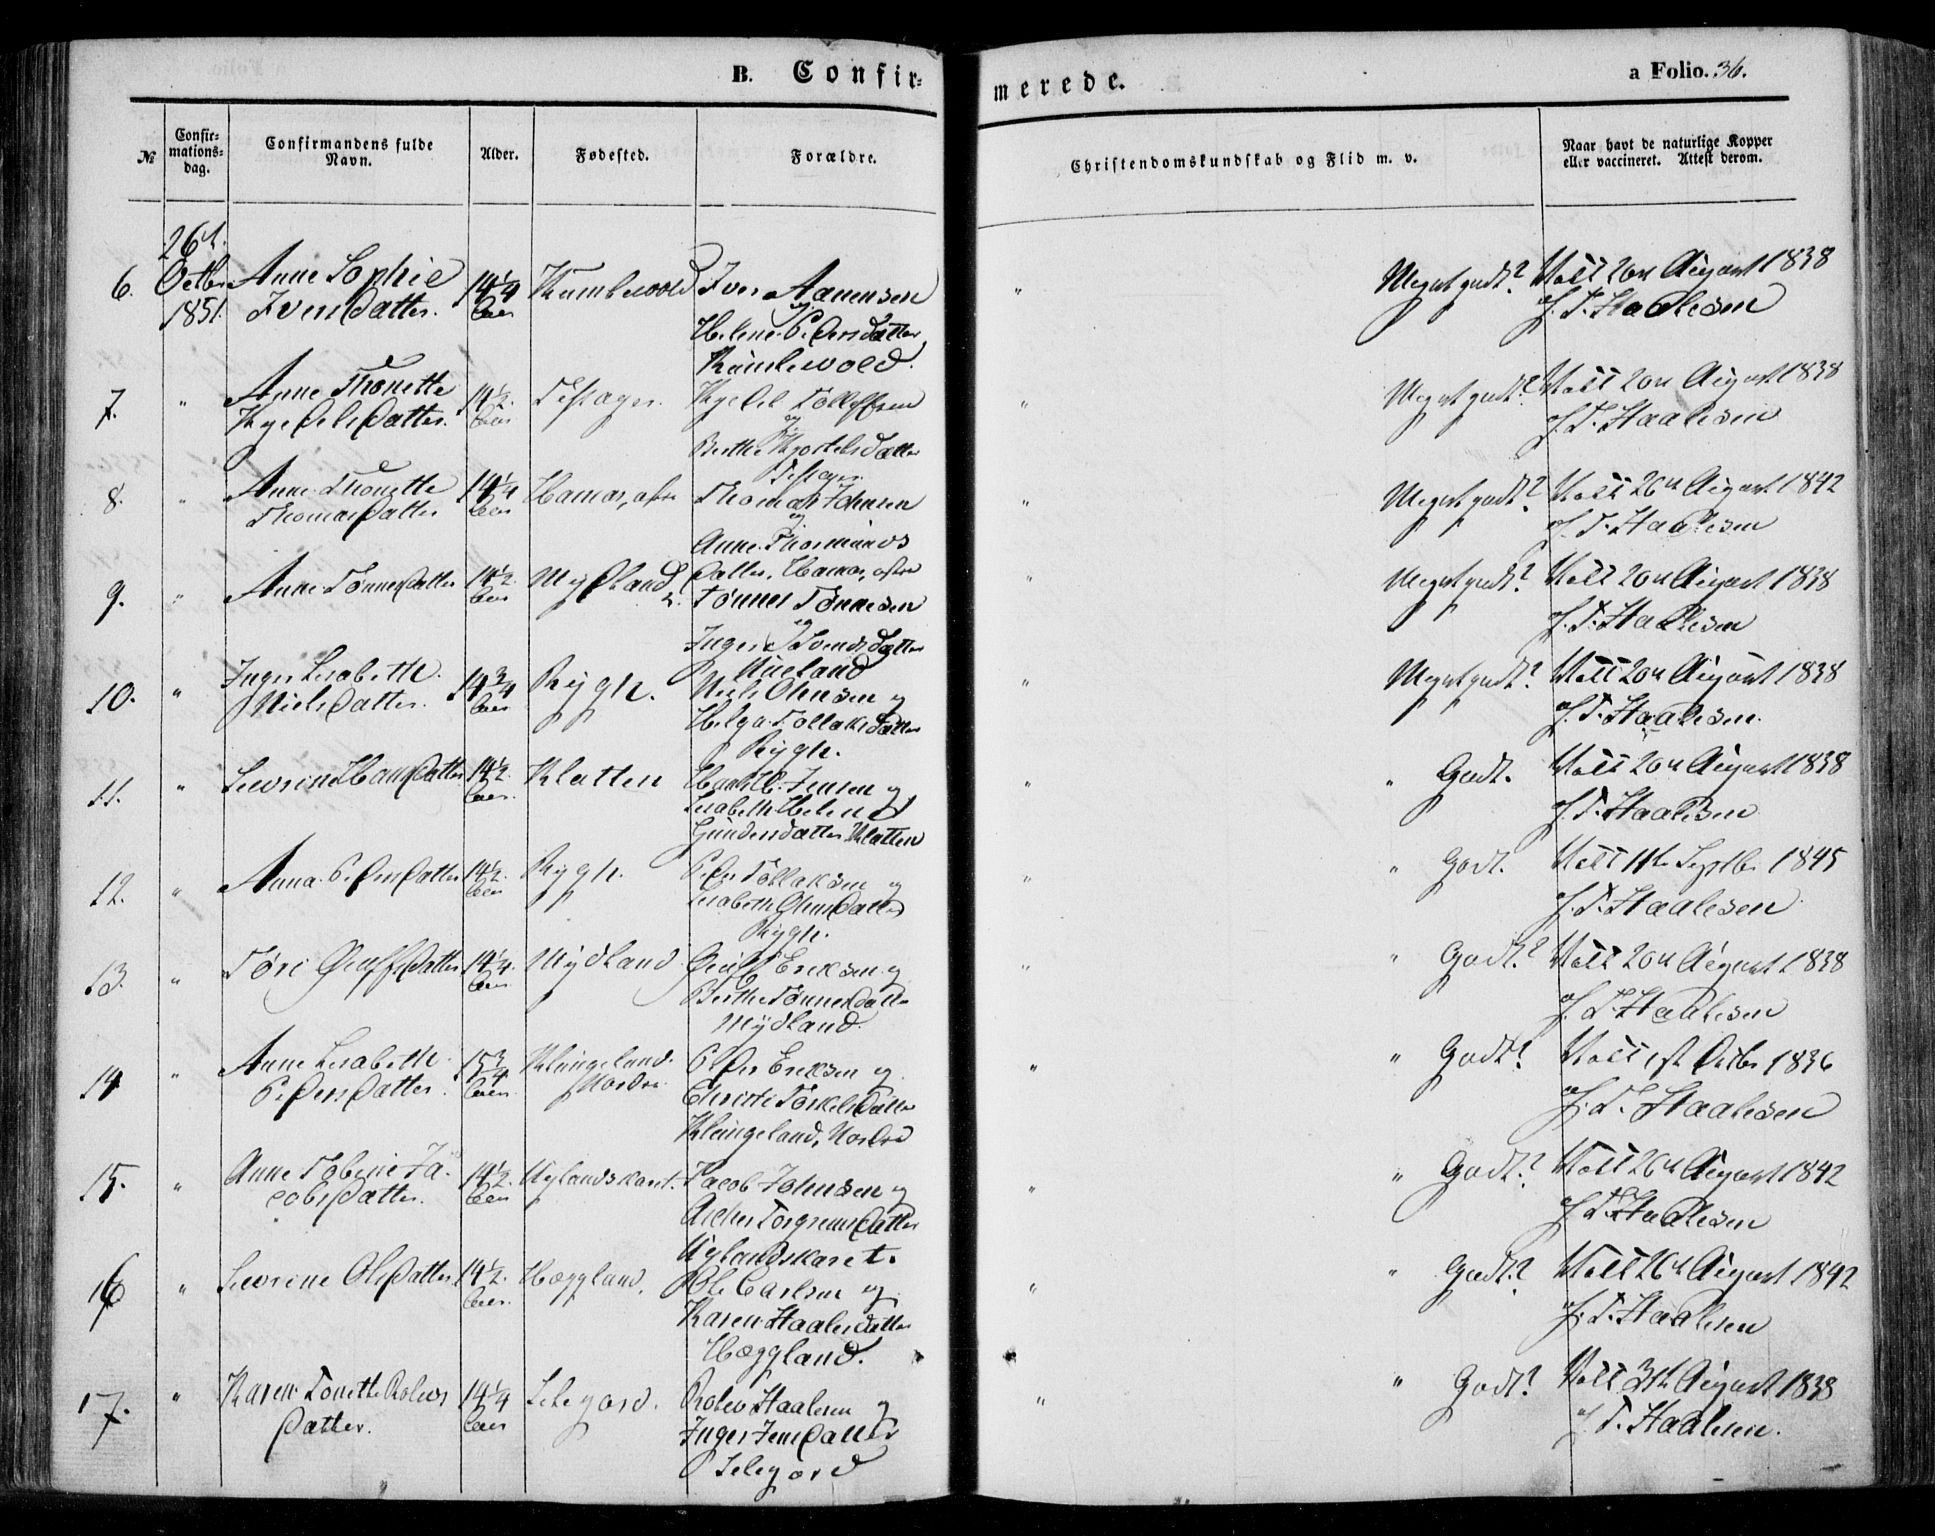 B. Confir-
merede.
a Folio. 36.
№
Confir-
mations-
dag.
Confirmandens fulde
Navn.
Alder.
Fødested.
Forældre.
Christendomskundskab og Flid m. v.
Naar havt de naturlige Kopper
eller vaccineret. Attest derom.
6. Octbr 1851. Anne Sophie Iversdatter. 14 1/4 Kumlevold Iver Aanensen
Helene Pedersdatter
Kumlevold.
" Meget godt? Vacc 20de August 1838
af T. Haalesen
7. " Anne Thonette 14 1/2.
" Meget godt? Vacc 20de August 1838
af T. Haalesen
8. " Anne Thonette Thomasdatter 14 1/4 Thomas Johnsen
og
Anne
datter.
" Meget godt? Vacc 26de August 1842
af T. Haalesen
9. " Anne Tønnesdatter 14 1/2. Mydland Tønnes Tønnesen
og
Inger Svendsdatter
" Meget godt? Vacc 20de August 1838
af T. Haalesen
10. " Inger Lisabeth Nielsdatter. 14 3/4 Rygh. Niels Olsen og
Helga Tollaksdatter
Rygh.
" Meget godt? Vacc 20de August 1838
af T. Haalesen.
11. " Sevrine Hansdatter 14 1/2. Klatten Hans H. Jensen og
Lisabeth Helene
Gundersdatter Klatten
" " Godt. Vacc 20de August 1838
af T. Haalesen
12. " Anna Pedersdatter 14 1/2. Rygh. Peder Tollaksen og
Lisabeth Olsdatter
Rygh.
" " Godt. Vacc 11te Septbr 1845
af T. Haalesen
13. " Tøri 14 1/4. Mydland Eriksen og
Berthe Tønnesdatter
Mydland.
" " Godt? Vacc 20de August 1838
af T. Haalesen
14 " Anne Lisabeth Pedersdatter. 15 3/4 Klungeland Nordre. Peder Eriksen og
Christi Torkelsdatter
Klungeland, Nordre
" " Godt? Vacc 1st Octbr 1836
af T. Haalesen
15. " Anne Tobine Jacobsdatter. 14 1/2. Uglandskaret. Jacob Johnsen og
datter
Uglandskaret.
" " Godt? Vacc 26de August 1842
af T. Haalesen
16 " Sevrine Olsdatter. 14 1/2. Hæggland. Ole Carlsen og
Karen Haalesdatter
Hæggland.
" " Godt.? Vacc 26de August 1842
af T. Haalesen
17. " Karen Tonette Rolevsdatter. 14 1/4 Selegård. Rolev Haalesen og
Inger Jensdatter
Selegård
" " Godt? Vacc August 1838
af T. Haalesen.